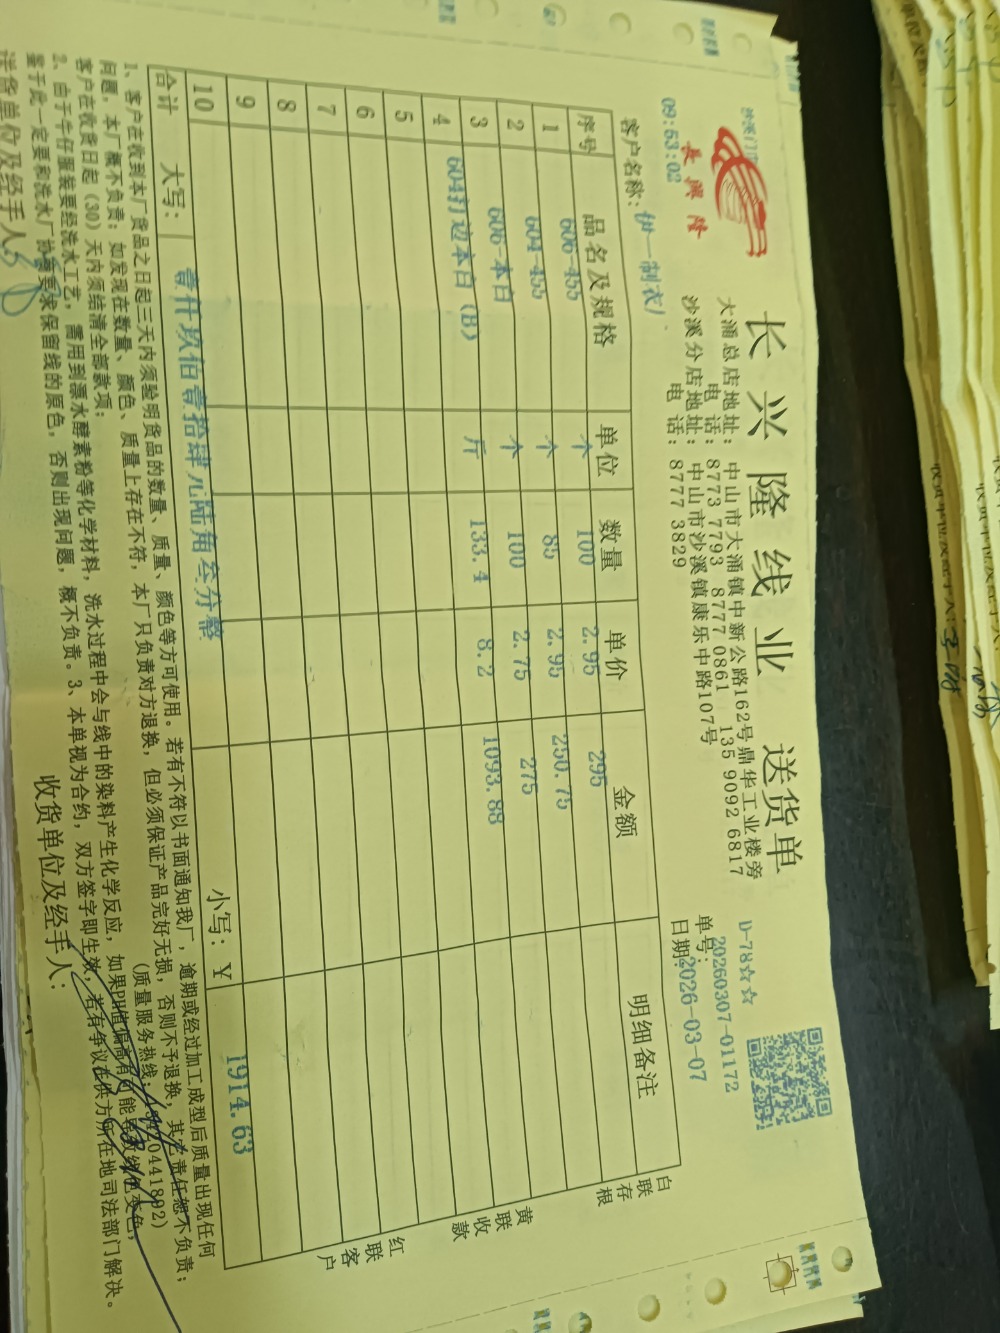 沙溪门市
長興隆
09:53:02
长兴隆线业 送货单
大涌总店地址：中山市大涌镇中新公路162号鼎华工业楼旁
电话：8773 7793 8777 0861 135 9092 6817
沙溪分店地址：中山市沙溪镇康乐中路107号
电话：8777 3829
D-78☆☆
单号：20260307-01172
日期：2026-03-07
客户名称：伊一制衣厂
序号 品名及规格 单位 数量 单价 金额 明细备注
1 606-455 个 100 2.95 295
2 604-455 个 85 2.95 250.75
3 606-本白 个 100 2.75 275
4 604打边本白(B) 斤 133.4 8.2 1093.88
5
6
7
8
9
10
合计 大写：壹仟玖佰壹拾肆元陆角叁分整 小写：￥ 1914.63
白联存根
黄联收款
红联客户
1、客户在收到本厂货品之日起三天内须验明货品的数量、质量、颜色等方可使用。若有不符以书面通知我厂，逾期或经过加工成型后质量出现任何
问题，本厂概不负责；如发现在数量、颜色、质量上存在不符，本厂只负责对方退换，但必须保证产品完好无损，否则不予退换，其它责任恕不负责；
客户在收货日起（30）天内须结清全部款项；
(质量服务热线：
2、由于牛仔服装要经洗水工艺，需用到漂水酵素粉等化学材料，洗水过程中会与线中的染料产生化学反应，如果PH值偏高有可能导致线色变色，
鉴于此一定要和洗水厂协调要求保留线的原色，否则出现问题，概不负责。3、本单视为合约，双方签字即生效，若有争议在供方所在地司法部门解决。
送货单位及经手人：
收货单位及经手人：